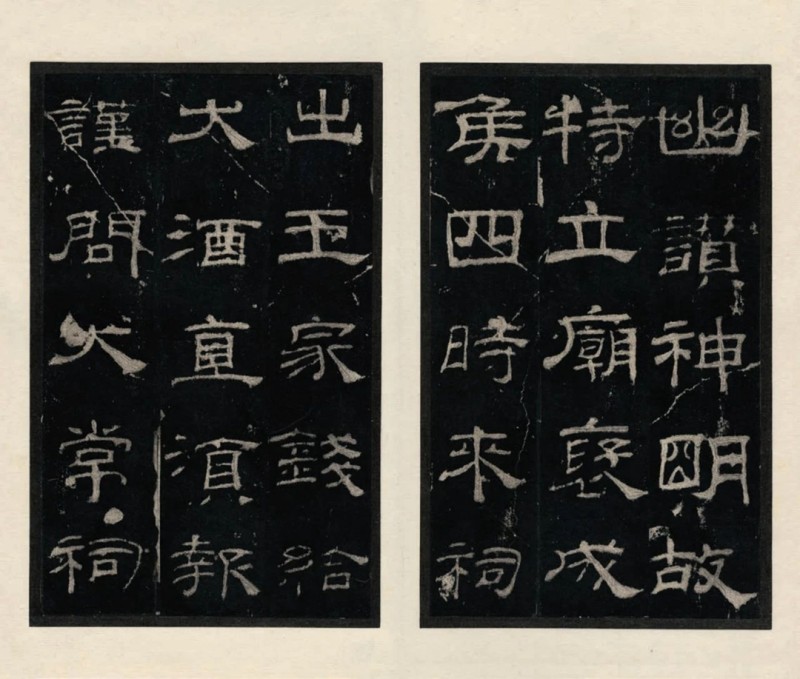 幽讚神明故
特立廟褒成
侯四時來祠
出王家錢給
大酒直須報
謹問大常祠